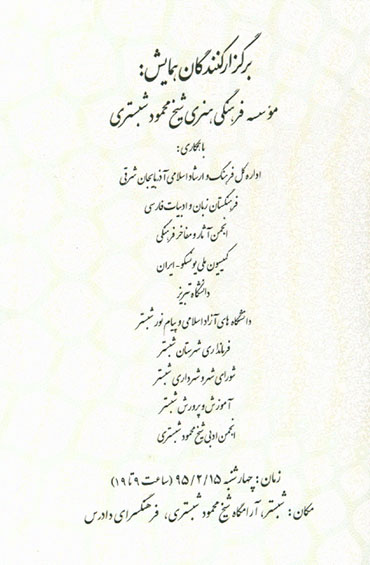 برگزارکنندگان همایش:
مؤسسه فرهنگی هنری شیخ محمود شبستری
با همکاری:
اداره کل فرهنگ و ارشاد اسلامی آذربایجان شرقی
فرهنگستان زبان و ادبیات فارسی
انجمن آثار و مفاخر فرهنگی
کمیسیون ملی یونسکو - ایران
دانشگاه تبریز
دانشگاه های آزاد اسلامی و پیام نور شبستر
فرمانداری شهرستان شبستر
شورای شهر و شهرداری شبستر
آموزش و پرورش شبستر
انجمن ادبی شیخ محمود شبستری
زمان: چهارشنبه ۹۵/۲/۱۵ (ساعت ۹ تا ۱۹)
مکان: شبستر، آرامگاه شیخ محمود شبستری، فرهنگسرای دادرس